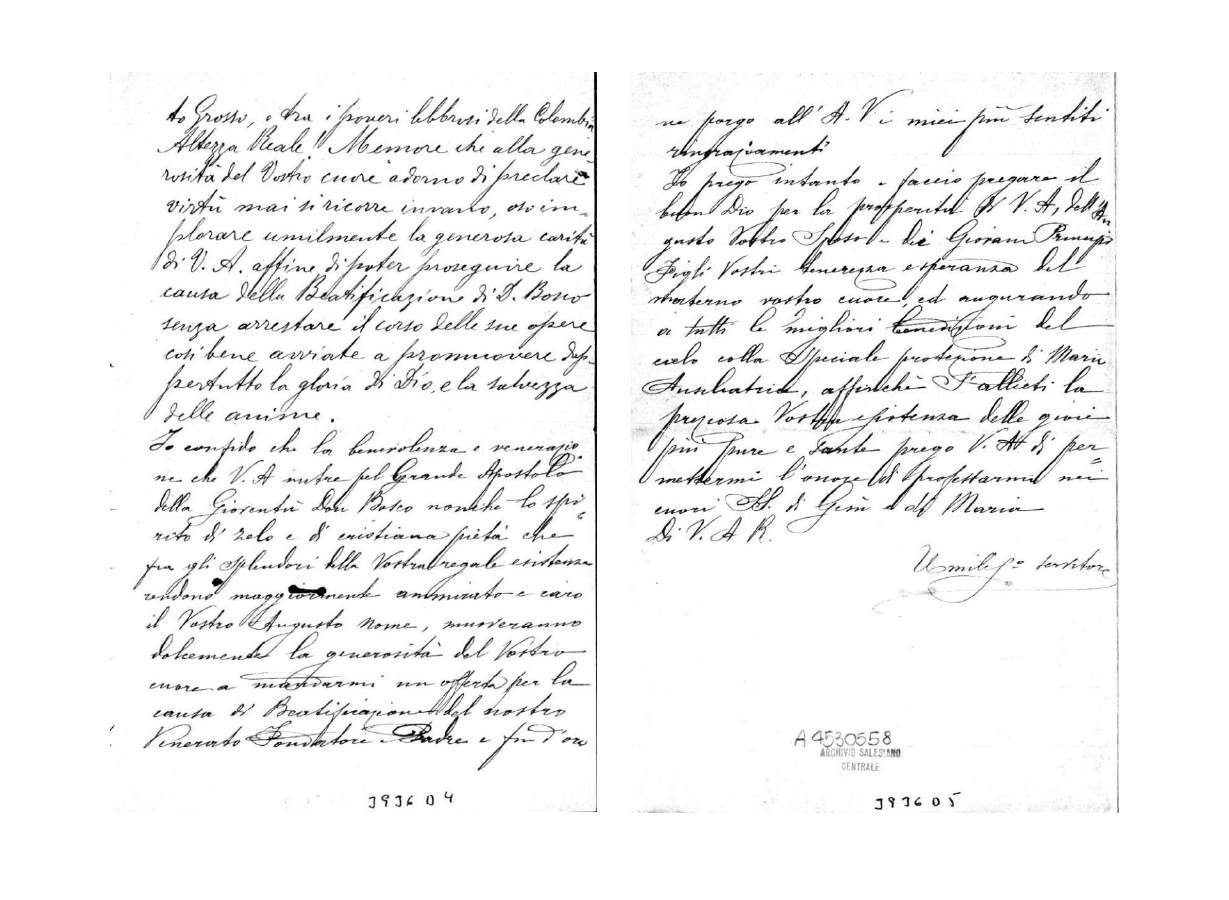 to Grosso, o tra i poveri lebbrosi della Colombia
Altezza Reale! Memore che alla gene-
rosità del Vostro cuore adorno di preclare
virtù mai si ricorre invano, oso im-
plorare umilmente la generosa carità
di V. A. affine di poter proseguire la
causa della Beatificazione di D. Bosco
senza arrestare il corso delle sue opere
così bene avviate a promuovere dap-
pertutto la gloria di Dio, e la salvezza
delle anime.
Io confido che la benevolenza e venerazio
ne che V. A nutre pel Grande Apostolo
della Gioventù Don Bosco nonche lo spi-
rito di zelo e di cristiana pietà che
fra gli splendori della Vostra regale esistenza
rendono maggiormente ammirato e caro
il Vostro Augusto nome, muoveranno
dolcemente la generosità del Vostro
cuore a mandarmi un offerta per la
causa di Beatificazione del nostro
Venerato Fondatore e Padre e fin d'ora
393604
ne porgo all' A. V i miei più sentiti
ringraziamenti
Io prego intanto e faccio pregare il
buon Dio per la prosperità di V. A, dell'Au
gusto Vostro Sposo e dei Giovani Principi
Figli Vostri tenerezza e speranza del
materno vostro cuore, ed augurando
a tutti le migliori benedizioni del
cielo colla speciale protezione di Maria
Ausiliatrice, affinchè allieti la
preziosa Vostra esistenza delle gioie
più pure e sante prego V. A di per-
mettermi l'onore di professarmi nei
cuori SS. di Gesù e di Maria
Di V. A R.
Umiliss.o servitore
A 4530558
ARCHIVIO SALESIANO
CENTRALE
393605